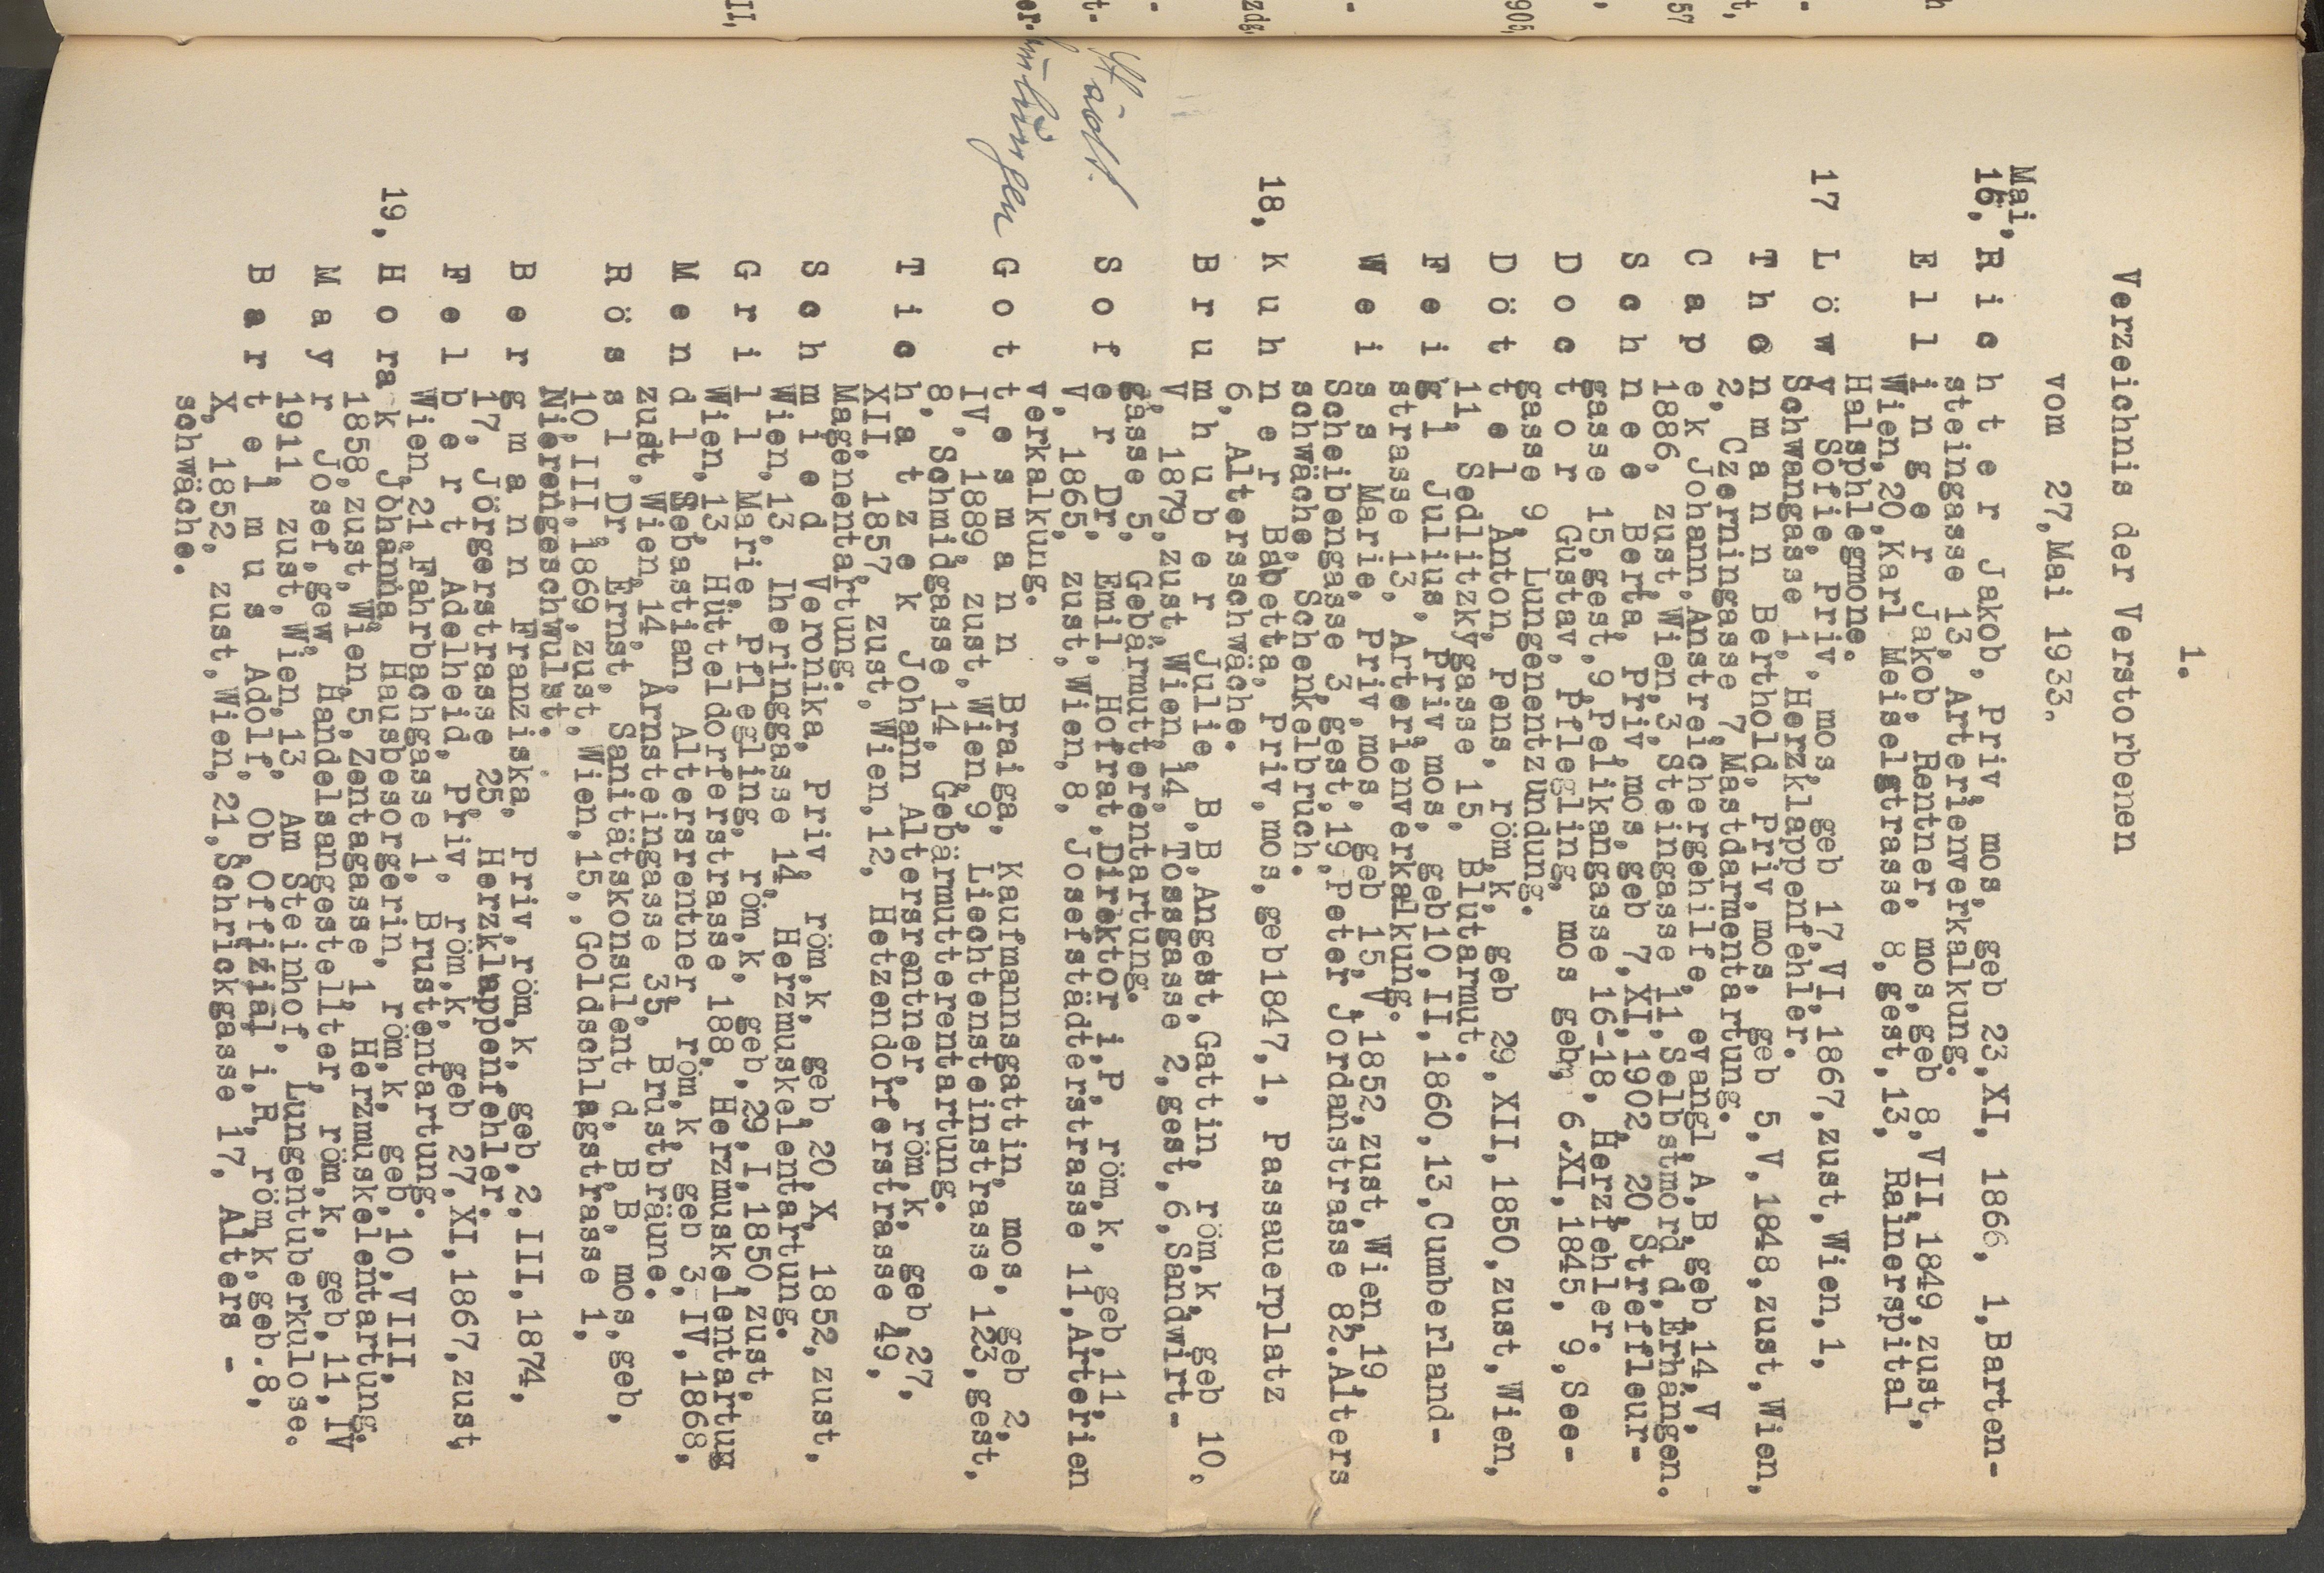 1.
Verzeichnis der Verstorbenen
vom 27,Mai 1933.
Mai,
16, R i c h t e r Jakob, Priv, mos, geb 23,XI, 1866, 1,Barten-
steingasse 13, Arterienverkalkung.
E l l i n g e r Jakob, Rentner, mos,geb 8,VII,1849,zust,
Wien,20,Karl Meiselgtrasse 8,gest,13, Rainerspital
Halsphlegmone.
17 L ö w y Sofie, Priv, mos, geb 17,VI,1867,zust,Wien,1,
Schwangasse 1, Herzklappenfehler.
T h e n m a n n Berthold, Priv,mos, geb 5,V,1848,zust,Wien,
2, Czerningasse 7,Mastdarmentartung.
C a p e k Johann,Anstreichergehilfe, evangl,A,B,geb,14,V,
1886, zust,Wien,3,Steingasse 11,Selbstmord d,Erhängen.
S c h n e e Berta, Priv,mos,geb 7,XI,1902, 20,Streffleur-
gasse 15,gest,9,Pelikangasse 16-18, Herzfehler.
D o c t o r Gustav, Pflegling, mos geb, 6,XI,1845, 9,See-
gasse 9, Lungenentzündung.
D ö t t e l Anton, Pens, röm,k, geb 29,XII,1850,zust,Wien,
11, Sedlitzkygasse 15, Blutarmut.
F e i g l Julius, Priv,mos, geb10,II,1860,13,Cumberland-
strasse 13, Arterienverkalkung.
W e i s s Marie, Priv,mos, geb 15,V,1852,zust,Wien,19,
Scheibengasse 3,gest,19,Peter Jordanstrasse 82.Alters
schwäche, Schenkelbruch.
18, K u h n e r Babetta, Priv,mos,geb1847,1, Passauerplatz
6, Altersschwäche.
B r u m h u b e r Julie, B,B,Angest,Gattin, röm,k, geb 10,
V, 1879,zust,Wien,14, Tossgasse 2,gest,6,Sandwirt-
gasse 5, Gebärmutterentartung.
Städt. S o f e r Dr, Emil, Hofrat,Direktor i,P, röm,k, geb,11,
V, 1865, zust,Wien,8, Josefstädterstrasse 11,Arterien
verkalkung.
G o t t e s m a n n Braiga, Kaufmannsgattin, mos, geb 2,
IV, 1889, zust,Wien,9, Liechtensteinstrasse 123,gest,
8, Schmidgasse 14, Gebärmutterentartung.
T i c h a t z e k Johann Altersrentner, röm,k, geb,27,
XII, 1857, zust,Wien,12, Hetzendorferstrasse 49,
Magenentartung.
S c h m i e d Veronika, Priv, röm,k, geb,20,X, 1852,zust,
Wien,13, Iheringgasse 14, Herzmuskelentartung.
G r i l l Marie, Pflegling, röm,k, geb,29,I,1850,zust,
Wien,13, Hütteldorferstrasse 188, Herzmuskelentartung
M e n d l Sebastian, Altersrentner röm,k, geb 3,IV,1868,
zust,Wien,14, Arnsteingasse 35, Brustbräune.
R ö s s l Dr, Ernst, Sanitätskonsulent d, B B, mos,geb,
10,III,1869,zust,Wien,15,,Goldschlagstrasse 1,
Nierengeschwulst.
B e r g m a n n Franziska, Priv,röm,k, geb,2,III,1874,
17, Jörgerstrasse 25, Herzklappenfehler.
F e l b e r t Adelheid, Priv, röm,k, geb 27,XI,1867,zust,
Wien,21,Fahrbachgasse 1, Brustentartung.
19, H o r a k Johanna, Hausbesorgerin, röm,k, geb,10,VIII,
1858,zust,Wien,5,Zentagasse 1, Herzmuskelentartung,
M a y r Josef,gew, Handelsangestellter, röm,k, geb,11,IV
1911, zust,Wien,13, Am Steinhof, Lungentuberkulose.
B a r t e l m u s Adolf, Ob,Offizial i,R, röm,k,geb.8,
X, 1852, zust,Wien,21,Schrickgasse 17, Alters -
schwäche.